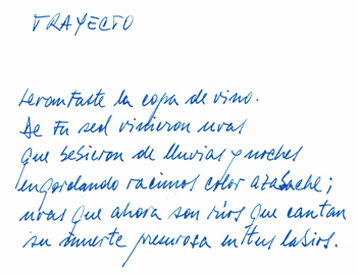 TRAYECTO
Levantaste la copa de vino.
De tu sed vinieron uvas
que bebieron de lluvias y noches
engordando racimos color azabache;
uvas que ahora son ríos que cantan
su muerte presurosa en tus labios.